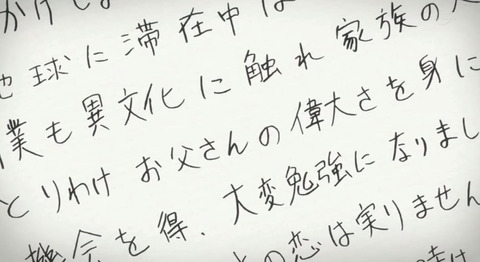 かけしま
地球に滞在中は
僕も異文化に触れ 家族の
とりわけ お父さんの偉大さを身に
機会を得、大変勉強になりまし
の恋は実りません